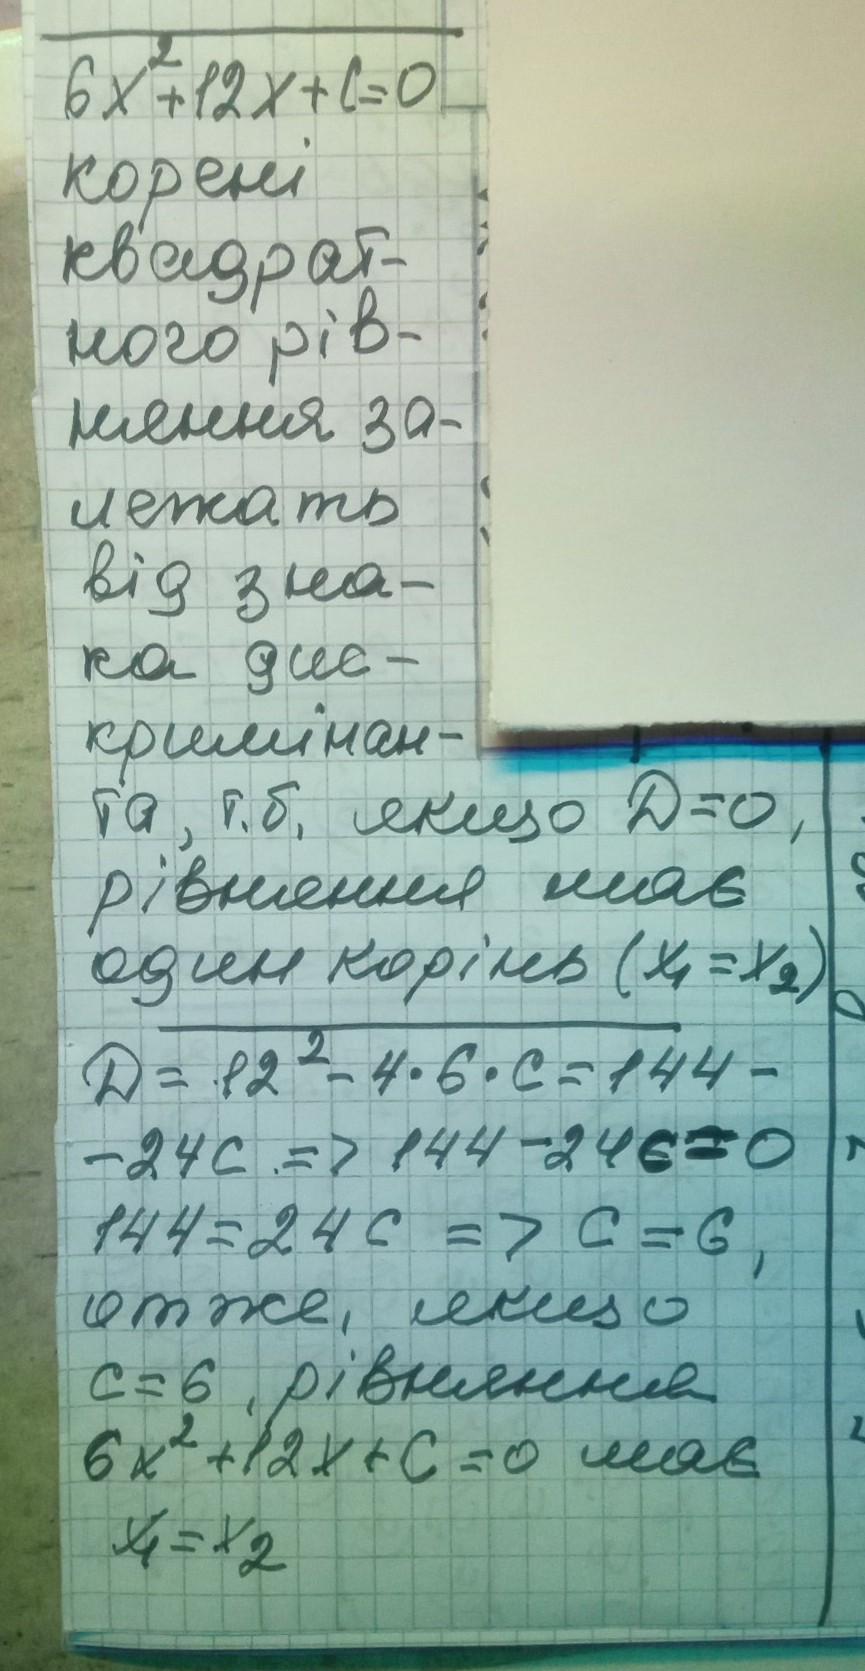 6x²+12x+c=0
корені
квадрат-
ного рів-
няння за-
лежать
від зна-
ка дис-
кримінан-
та, т.б. якщо D=0,
рівняння має
один корінь (x₁=x₂)
D=12²-4·6·c=144-
-24c => 144-24c=0
144=24c => c=6,
отже, якщо
c=6, рівняння
6x²+12x+c=0 має
x₁=x₂